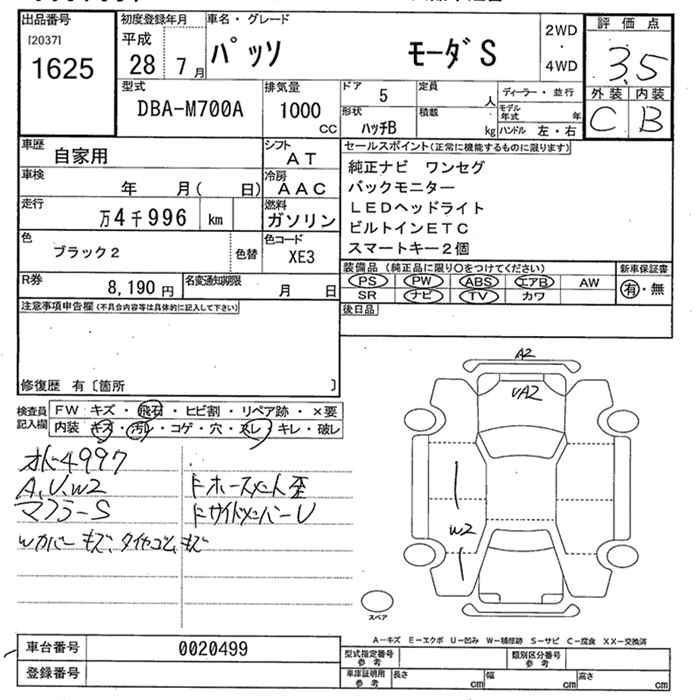 出品番号
[2037]
1625
初度登録年月
平成
28年7月
車名・グレード
パッソ モーダS
2WD
・
4WD
評価点
3.5
外装 内装
C B
型式
DBA-M700A
排気量
1000
CC
ドア
5
定員
人
形状
ハッチB
積載
kg
ディーラー・並行
モデル年式 年
ハンドル 左・右
車歴
自家用
シフト
AT
車検
年 月( 日)
冷房
AAC
走行
万4千996 km
燃料
ガソリン
色
ブラック2
色替
色コード
XE3
R券
8,190円
名変通知期限
月 日
セールスポイント(正常に機能するものに限ります)
純正ナビ ワンセグ
バックモニター
LEDヘッドライト
ビルトインETC
スマートキー2個
装備品(純正品に限り○をつけてください)
PS PW ABS エアB AW
SR ナビ TV カワ
新車保証書
有・無
後日品
注意事項申告欄(不具合内容等は具体的に記入して下さい)
修復歴 有〔箇所 〕
検査員
記入欄
FW キズ・飛石・ヒビ割・リペア跡・×要
内装 キズ・汚レ・コゲ・穴・スレ・キレ・破レ
4997
A,U,W2
マフラーS
Wカバーキズ、タイヤ
A2
UA2
W2
スペア
A-キズ E-エクボ U-凹み W-補修跡 S-サビ C-腐食 XX-交換済
車台番号
0020499
登録番号
型式指定番号
参考
類別区分番号
参考
車庫証明用
参考
長さ cm
幅 cm
高さ cm